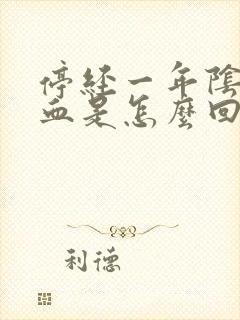 停經一年陰
血是怎麼回
利德